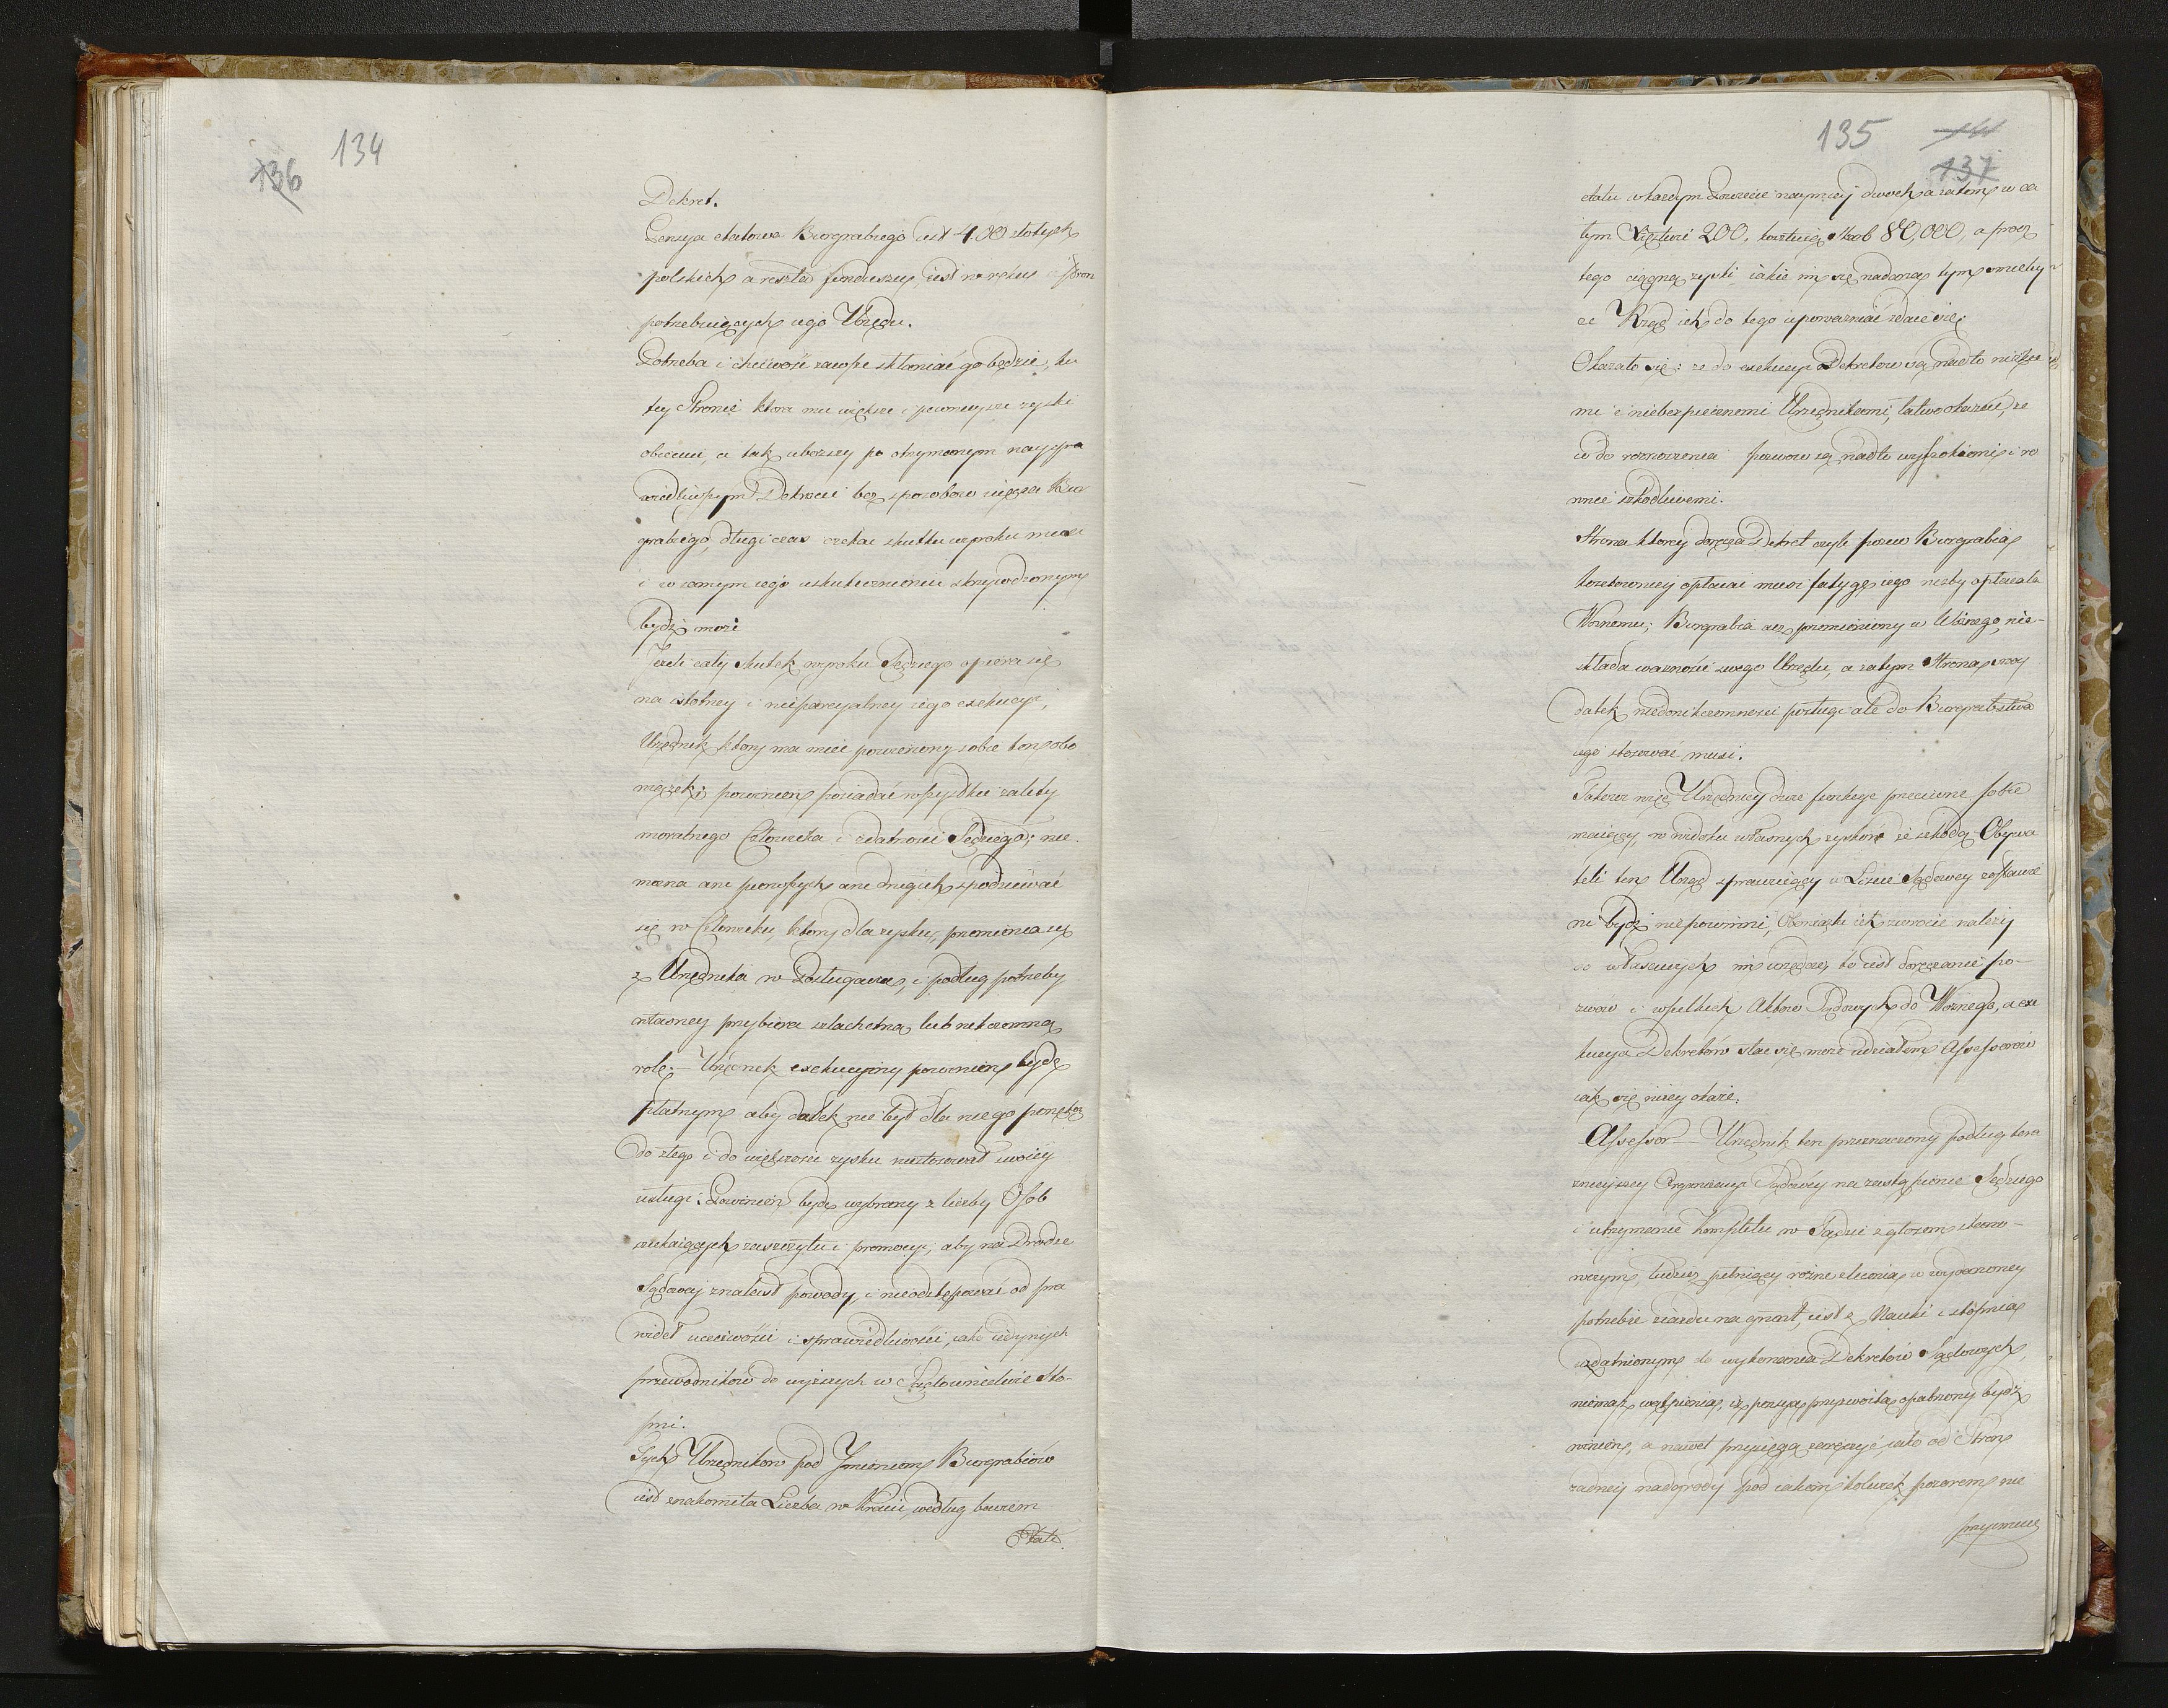 134
136
Dekret.
Pensya etatowa Burgrabiego iest 400 złotych
polskich a reszta funduszu iest na ręku Stron
potrzebuiących iego Urzędu.
Potrzeba i chciwość zawsze skłaniać go będzie, ku
tey Stronie ktora mu większe i pewnieysze zyski
obiecuie, a tak uboższy po otrzymanym nayspra
wiedliwszym Dekrecie bez sposobow uięcia Bur
grabiego, długi czas czekać skutku wyroku musi
i w samym iego uskutecznieniu skrzywdzonym
bydź może
Jeżeli cały skutek wyroku Sędziego opiera się
na istotney i nieparcyalney iego exekucyi,
Urzędnik ktory ma mieć powierzony sobie ten obo
wiązek, powinien posiadać wszystkie zalety
moralnego Człowieka i zdatności Sędziego; nie
można ani pierwszych ani drugich spodziewać
się w Człowieku, ktory dla zysku, przemienia się
z Urzędnika w Posługacza, i podług potrzeby
własney przybiera szlachetną lub nikczemną
rolę. – Urzędnik exekucyiny powinien bydź
płatnym aby datek nie był dla niego ponętą
do złego i do większości zysku niestosował swoiey
usługi: Powinien bydź wybrany z liczby Osob
szukaiących zaszczytu i promocyi, aby na drodze
Sądowey znalazł powody, i nieodstępował od pra
wideł uczciwości i sprawiedliwości, iako iedynych
przewodnikow do wyższych w Sądownictwie sto-
pni.
Tych Urzędnikow pod Jmieniem Burgrabiów
iest znakomita Liczba w Kraiu, według bowiem
Etatu
135
137
etatu w każdym Powiecie naymniey dwoch, a zatem w ca
łym Xięstwie 200, kosztuią Skarb 80,000, a procz
tego ciągną zyski iakie im się nadarzą tym śmieley
że Rząd ich do tego upoważniać zdaie się;
Okazało się: że do exekucyi Dekretow są nadto nizkie
mi i niebezpiecznemi Urzędnikami, łatwo okazać, że
i do roznoszenia pozwow są nadto wysokiemi i ro
wnie szkodliwemi.
Strona ktorey doręcza Dekret czyli pozew Burgrabia
kosztowniey opłacać musi fatygę iego niżby opłacała
Woznemu; Burgrabia acz przemieniony w Woznego, nie-
składa ważności swego Urzędu, a zatym Strona swoy
datek niedo nikczemności posługi ale do Burgrabstwa
iego stosować musi.
Takowi więc Urzędnicy dwie funkcye przeciwne sobie
maiący, w widoku własnych zyskow ze szkodą Obywa
teli ten Urząd sprawuiący w Liście Sądowey zostawie
ni bydź niepowinni, Obowiązki ich zwrocić należy
do własciwych im urzędow, to iest doręczanie po-
zwow i wszelkich Aktow Sądowych do Woznego, a exe
kucya Dekretów stać się może udziałem Assessorow
iak się niżey okaże.
Assessor – Urzędnik ten przeznaczony podług tera
znieyszey Organizacyi Sądowey na zastąpienie Sędziego
i utrzymanie Kompletu w Sądzie z głosem stano-
wczym, tudzież pełniący rożne zlecenia w wydarzoney
potrzebie ziazdu na grunt, iest z Nauki i stopnia
uzdatnionym do wykonania Dekretów Sądowych,
niemasz wątpienia, iż pensyą przyzwoitą opatrzony bydź
winien, a nawet przysięgą zaręczyć iako od Stron
żadney nadgrody pod iakimkolwiek pozorem nie
przyimuie